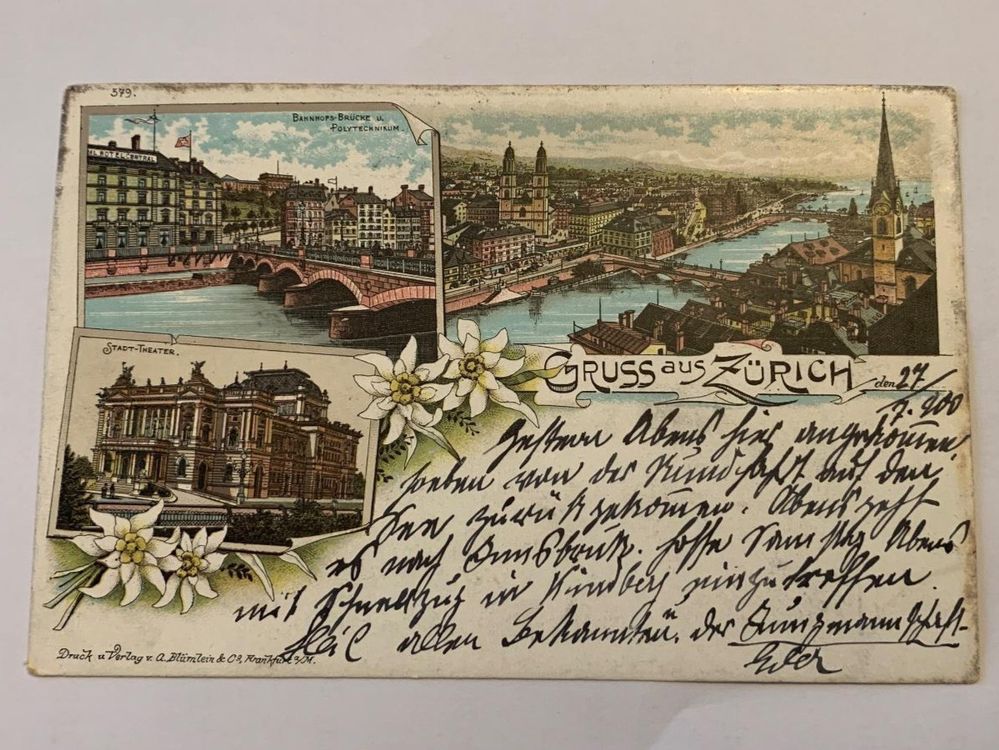 379.
BAHNHOFS-BRÜCKE U.
POLYTECHNIKUM.
HOTEL CENTRAL
STADT-THEATER.
GRUSS aus ZÜRICH
den 27/
7. 900
Gestern Abens hier angekommen,
soeben von der Rundfahrt auf den
See zurückgekommen. Abens geht
es nach Innsbruk. hoffe Samstag Abens
mit Schnellzug in Kindberg einzutreffen
Heil allen Bekannten u. der
Eder
Druck u Verlag v. A. Blümlein & Co, Frankfurt a/M.